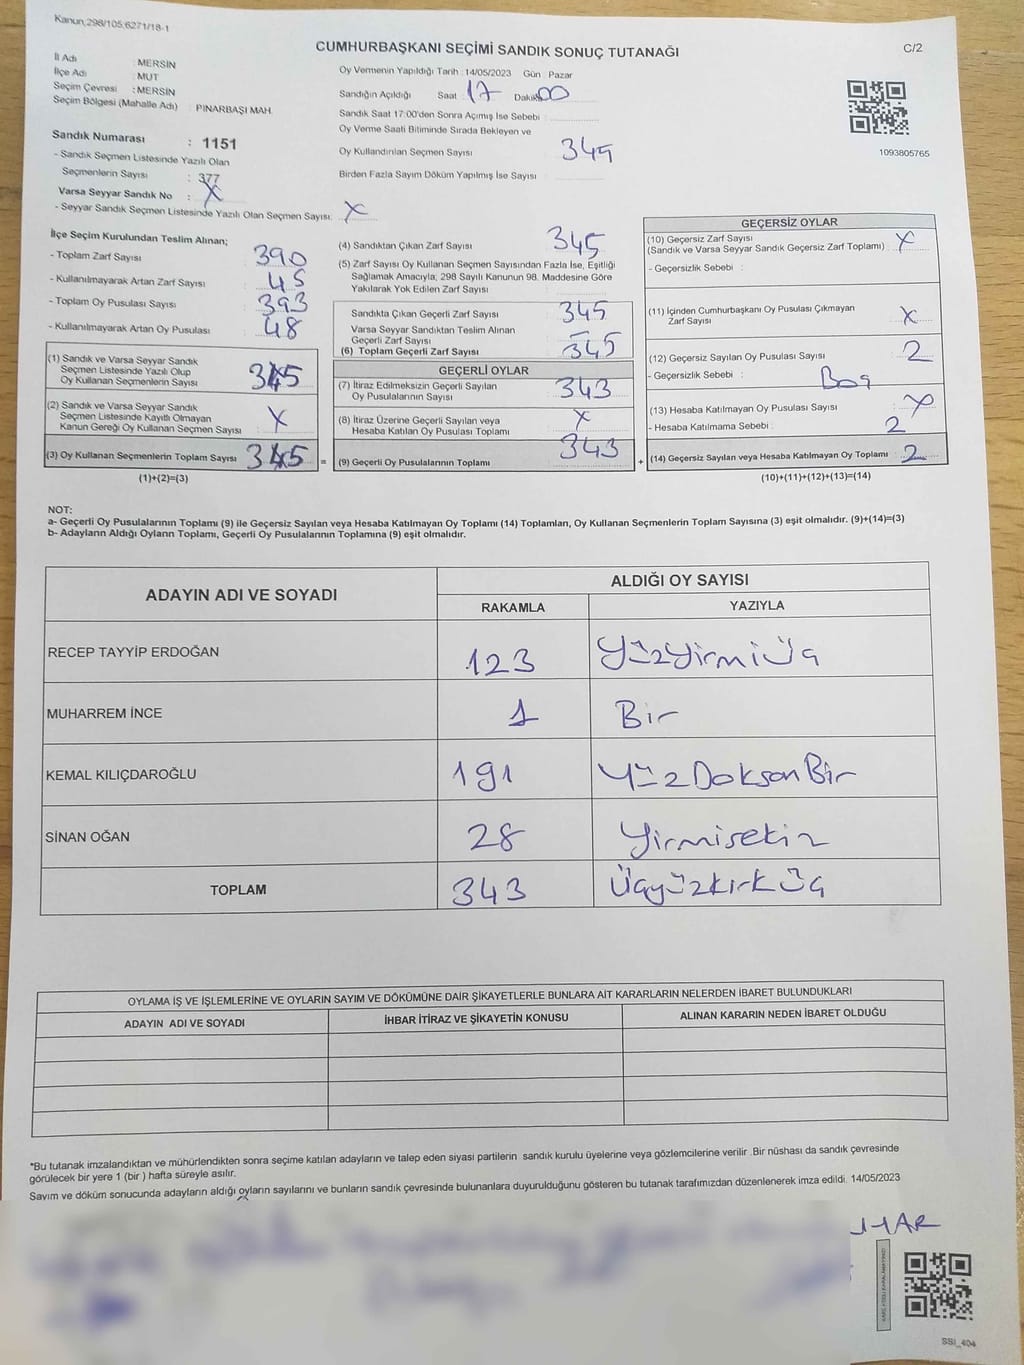 Kanun;298/105;6271/18-1
CUMHURBAŞKANI SEÇİMİ SANDIK SONUÇ TUTANAĞI
C/2
İl Adı : MERSİN
İlçe Adı : MUT
Seçim Çevresi : MERSİN
Seçim Bölgesi (Mahalle Adı) : PINARBAŞI MAH.
Oy Vermenin Yapıldığı Tarih : 14/05/2023 Gün Pazar
Sandığın Açıldığı Saat 17 Dakika 00
Sandık Saat 17:00'den Sonra Açımış İse Sebebi :
Oy Verme Saati Bitiminde Sırada Bekleyen ve
Oy Kullandırılan Seçmen Sayısı 345
Birden Fazla Sayım Döküm Yapılmış İse Sayısı
1093805765
Sandık Numarası : 1151
- Sandık Seçmen Listesinde Yazılı Olan
Seçmenlerin Sayısı : 377
Varsa Seyyar Sandık No : X
- Seyyar Sandık Seçmen Listesinde Yazılı Olan Seçmen Sayısı: X
İlçe Seçim Kurulundan Teslim Alınan;
- Toplam Zarf Sayısı : 390
- Kullanılmayarak Artan Zarf Sayısı : 45
- Toplam Oy Pusulası Sayısı : 393
- Kullanılmayarak Artan Oy Pusulası : 48
(1) Sandık ve Varsa Seyyar Sandık
Seçmen Listesinde Yazılı Olup
Oy Kullanan Seçmenlerin Sayısı 345
(2) Sandık ve Varsa Seyyar Sandık
Seçmen Listesinde Kayıtlı Olmayan
Kanun Gereği Oy Kullanan Seçmen Sayısı X
(3) Oy Kullanan Seçmenlerin Toplam Sayısı 345 =
(1)+(2)=(3)
(4) Sandıktan Çıkan Zarf Sayısı 345
(5) Zarf Sayısı Oy Kullanan Seçmen Sayısından Fazla İse, Eşitliği
Sağlamak Amacıyla, 298 Sayılı Kanunun 98. Maddesine Göre
Yakılarak Yok Edilen Zarf Sayısı
Sandıkta Çıkan Geçerli Zarf Sayısı 345
Varsa Seyyar Sandıktan Teslim Alınan
Geçerli Zarf Sayısı –
(6) Toplam Geçerli Zarf Sayısı 345
GEÇERLİ OYLAR
(7) İtiraz Edilmeksizin Geçerli Sayılan
Oy Pusulalarının Sayısı 343
(8) İtiraz Üzerine Geçerli Sayılan veya
Hesaba Katılan Oy Pusulası Toplamı X
(9) Geçerli Oy Pusulalarının Toplamı 343 +
GEÇERSİZ OYLAR
(10) Geçersiz Zarf Sayısı
(Sandık ve Varsa Seyyar Sandık Geçersiz Zarf Toplamı) X
- Geçersizlik Sebebi :
(11) İçinden Cumhurbaşkanı Oy Pusulası Çıkmayan
Zarf Sayısı X
(12) Geçersiz Sayılan Oy Pusulası Sayısı 2
- Geçersizlik Sebebi : Boş
(13) Hesaba Katılmayan Oy Pusulası Sayısı X
- Hesaba Katılmama Sebebi : 2
(14) Geçersiz Sayılan veya Hesaba Katılmayan Oy Toplamı 2
(10)+(11)+(12)+(13)=(14)
NOT:
a- Geçerli Oy Pusulalarının Toplamı (9) ile Geçersiz Sayılan veya Hesaba Katılmayan Oy Toplamı (14) Toplamları, Oy Kullanan Seçmenlerin Toplam Sayısına (3) eşit olmalıdır. (9)+(14)=(3)
b- Adayların Aldığı Oyların Toplamı, Geçerli Oy Pusulalarının Toplamına (9) eşit olmalıdır.
ADAYIN ADI VE SOYADI
ALDIĞI OY SAYISI
RAKAMLA YAZIYLA
RECEP TAYYİP ERDOĞAN 123 YüzYirmiÜç
MUHARREM İNCE 1 Bir
KEMAL KILIÇDAROĞLU 191 YüzDoksanBir
SİNAN OĞAN 28 Yirmisekiz
TOPLAM 343 ÜçyüzkırkÜç
OYLAMA İŞ VE İŞLEMLERİNE VE OYLARIN SAYIM VE DÖKÜMÜNE DAİR ŞİKAYETLERLE BUNLARA AİT KARARLARIN NELERDEN İBARET BULUNDUKLARI
ADAYIN ADI VE SOYADI İHBAR İTİRAZ VE ŞİKAYETİN KONUSU ALINAN KARARIN NEDEN İBARET OLDUĞU
*Bu tutanak imzalandıktan ve mühürlendikten sonra seçime katılan adayların ve talep eden siyasi partilerin sandık kurulu üyelerine veya gözlemcilerine verilir .Bir nüshası da sandık çevresinde
görülecek bir yere 1 (bir ) hafta süreyle asılır.
Sayım ve döküm sonucunda adayların aldığı oyların sayılarını ve bunların sandık çevresinde bulunanlara duyurulduğunu gösteren bu tutanak tarafımızdan düzenlenerek imza edildi. 14/05/2023
SSI_404